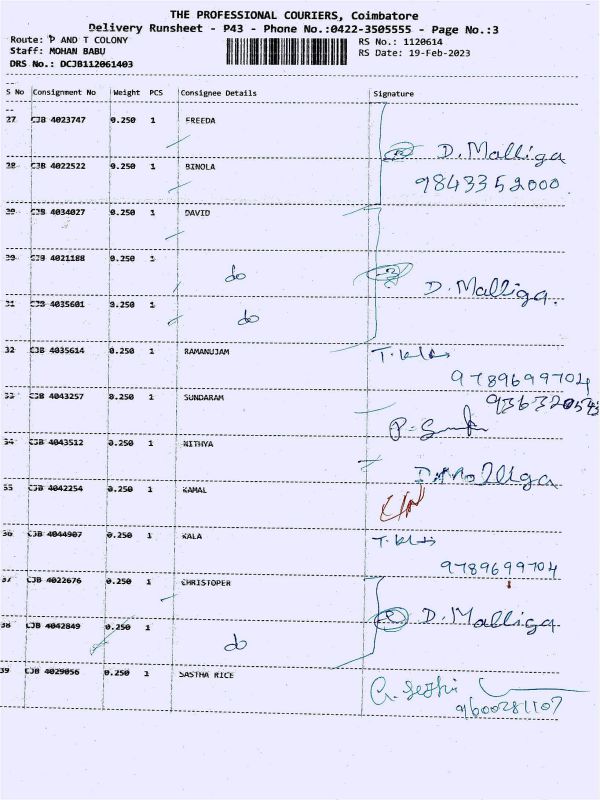 THE PROFESSIONAL COURIERS, Coimbatore
Delivery Runsheet - P43 - Phone No.:0422-3505555 - Page No.:3
Route: P AND T COLONY RS No.: 1120614
Staff: MOHAN BABU RS Date: 19-Feb-2023
DRS No.: DCJB112061403
S No Consignment No Weight PCS Consignee Details Signature
27 CJB 4023747 0.250 1 FREEDA
D. Malliga
28 CJB 4022522 0.250 1 BINOLA
9843352000
29 CJB 4034027 0.250 1 DAVID
30 CJB 4021188 0.250 1
do
D. Malliga
31 CJB 4035601 0.250 1
do
32 CJB 4035614 0.250 1 RAMANUJAM
9789699704
33 CJB 4043257 0.250 1 SUNDARAM
34 CJB 4043512 0.250 1 NITHYA
D. Malliga
35 CJB 4042254 0.250 1 KAMAL
36 CJB 4044907 0.250 1 KALA
9789699704
37 CJB 4022676 0.250 1 CHRISTOPER
D. Malliga
38 CJB 4042849 0.250 1
do
39 CJB 4029056 0.250 1 SASTHA RICE
9600281107